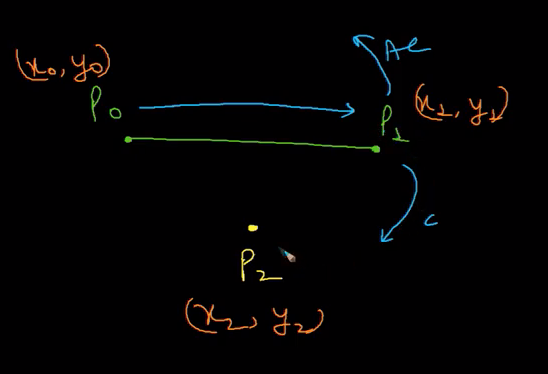 (x0, y0)
P0
AC
P1
(x1, y1)
C
P2
(x2, y2)